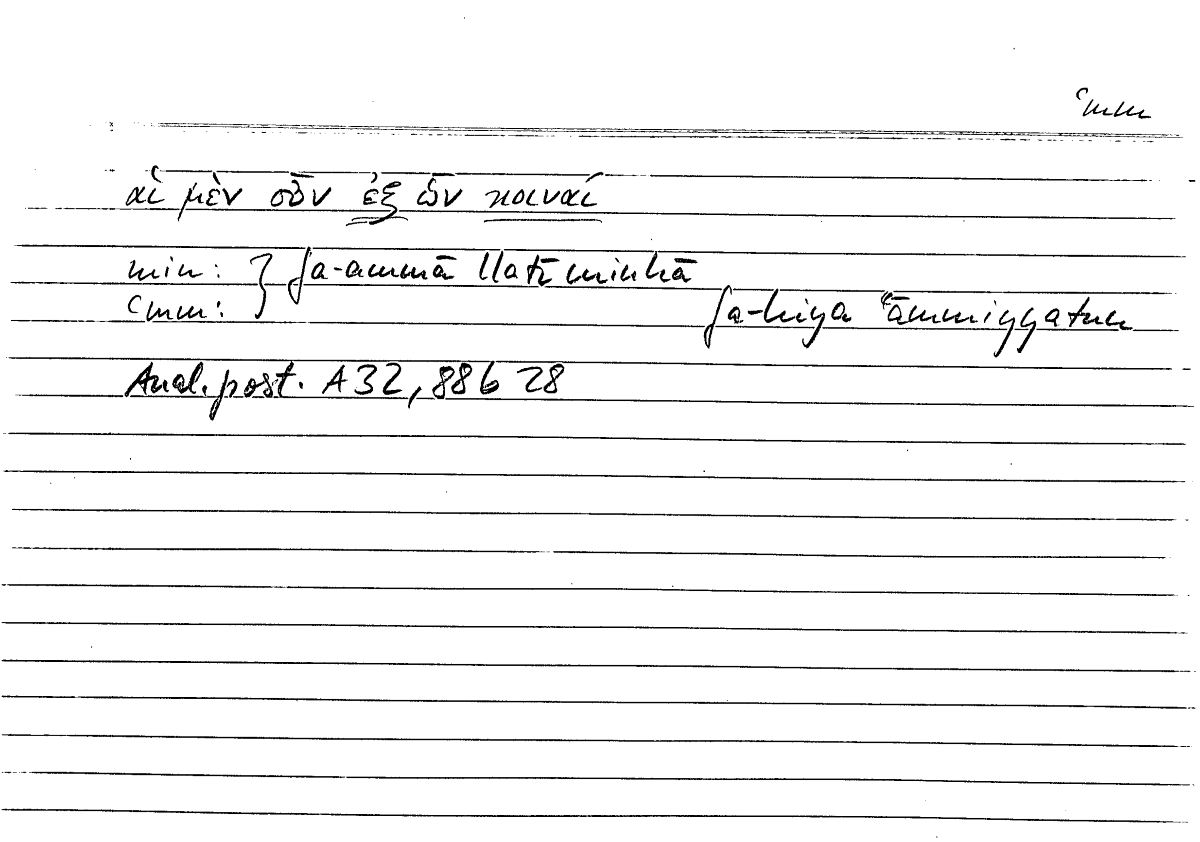 ʿmm
αἱ μὲν οὖν ἐξ ὧν κοιναί
min: } fa-ammā llatī minhā
ʿmm: fa-hiya ʿāmmiyyatun
Anal. post. A 32, 88 b 28